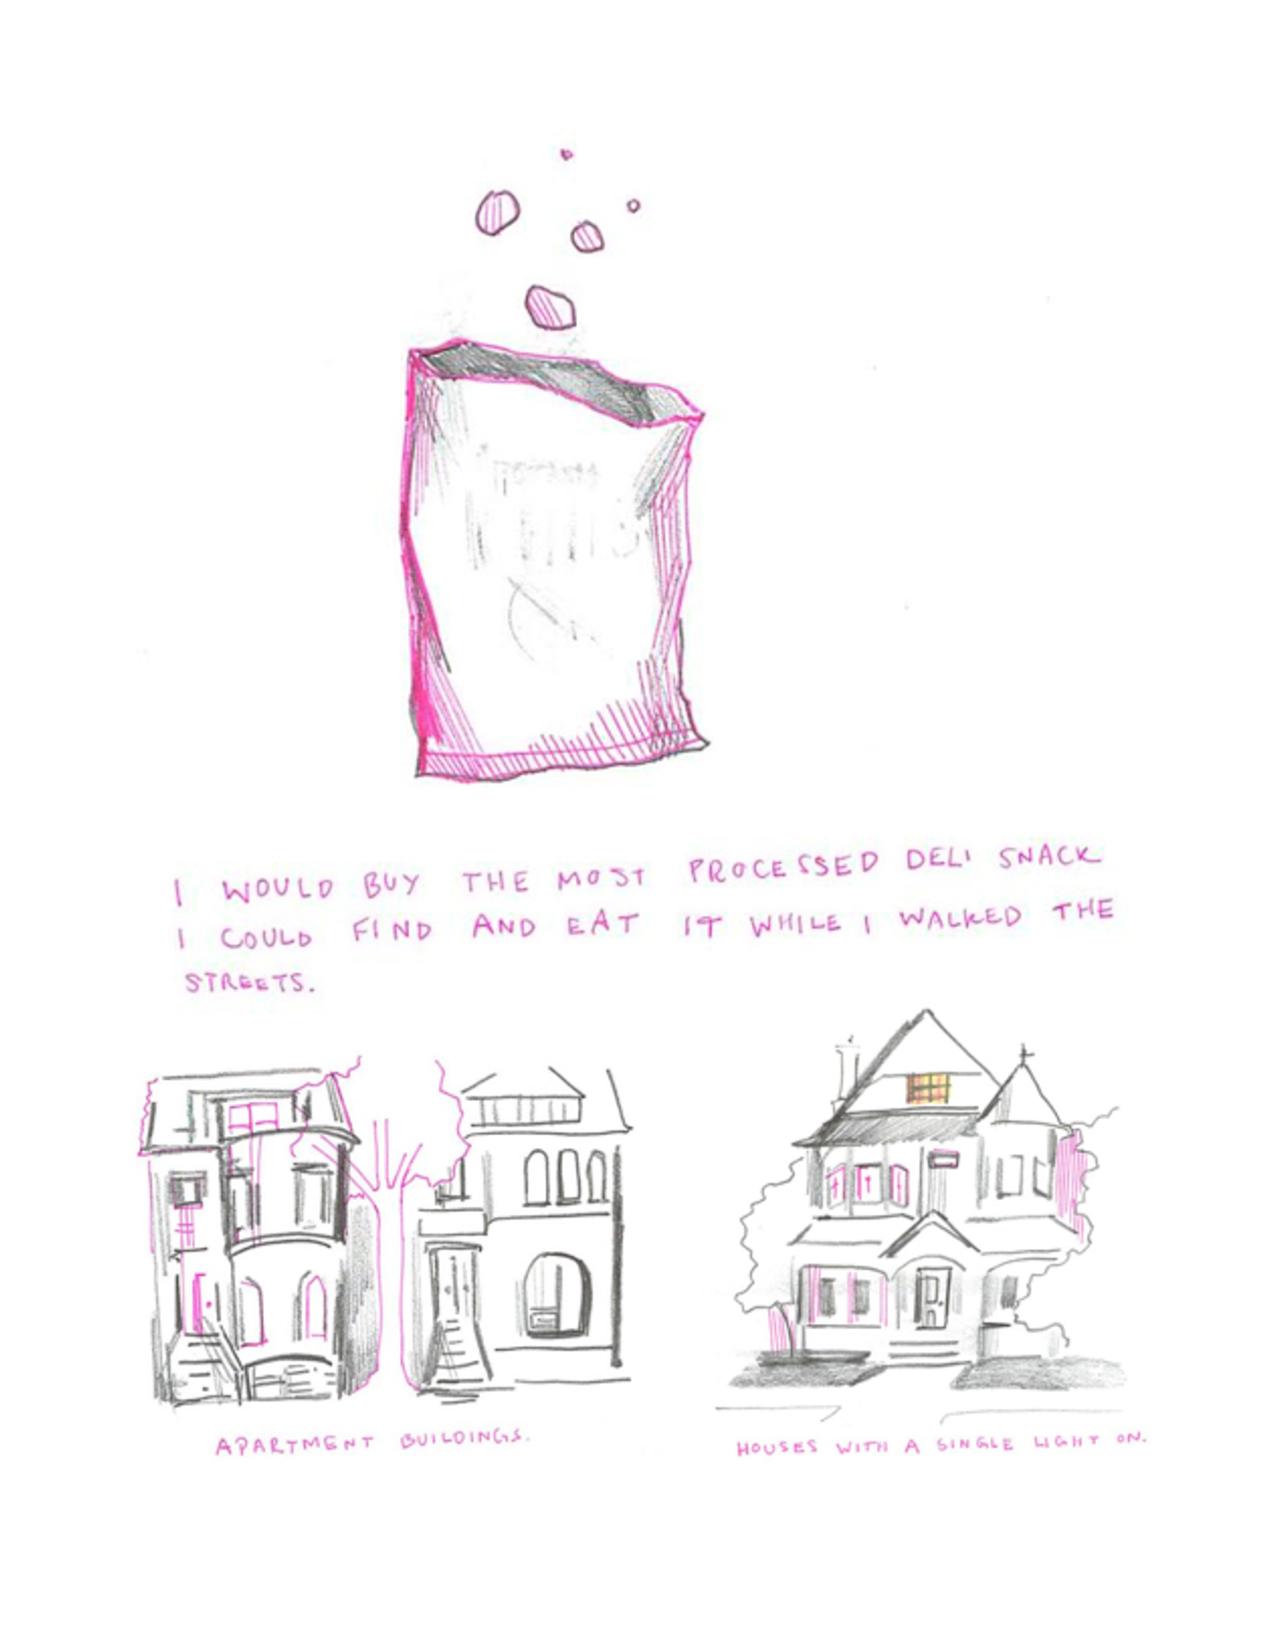 I WOULD BUY THE MOST PROCESSED DELI SNACK
I COULD FIND AND EAT IT WHILE I WALKED THE
STREETS.
APARTMENT BUILDINGS.
HOUSES WITH A SINGLE LIGHT ON.